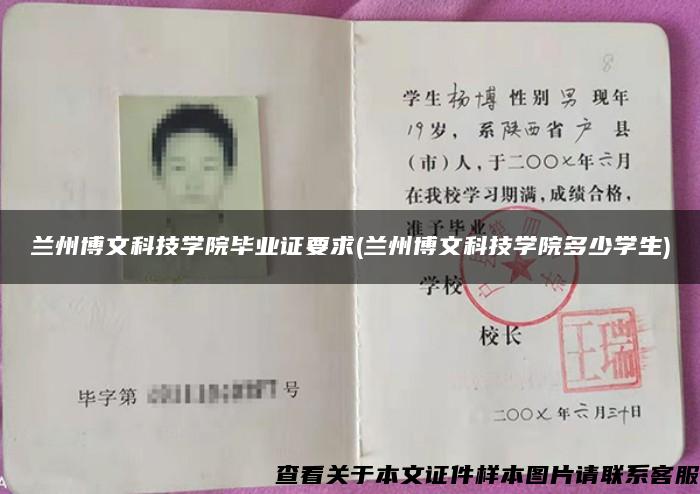 8
学生杨博性别男现年
19岁，系陕西省户县
(市)人，于二〇〇七年六月
在我校学习期满，成绩合格，
准予毕业
兰州博文科技学院毕业证要求(兰州博文科技学院多少学生)
学校
校长
毕字第
号
二〇〇七年六月三十日
查看关于本文证件样本图片请联系客服